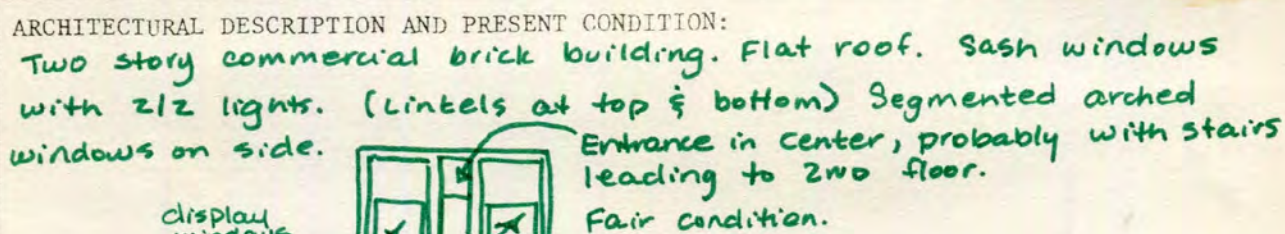 ARCHITECTURAL DESCRIPTION AND PRESENT CONDITION:
Two story commercial brick building. Flat roof. Sash windows
with 2/2 lights. (Lintels at top & bottom) Segmented arched
windows on side.
Entrance in center, probably with stairs
leading to 2ND floor.
Fair condition.
display
windows